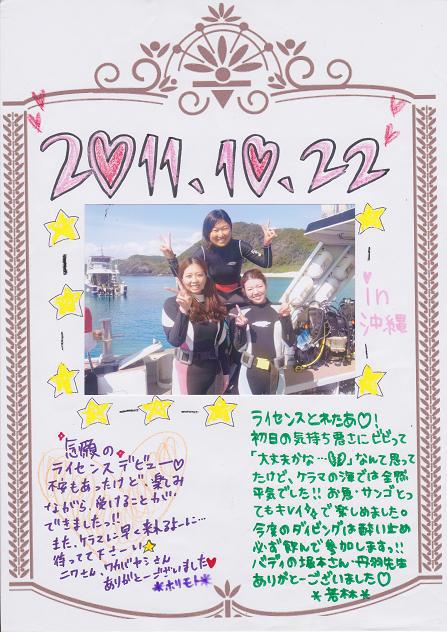 2011.10.22
in
沖縄
念願の
ライセンスデビュー♡
不安もあったけど、楽しみ
ながら、受けることが
できましたっ!!
また、ケラマに早く来れるよーに…
待ってて下さーい☆
ニワさん、ワカバヤシさん
ありがとーございました♥
*ホリモト*
ライセンスとれたあ♡!
初日の気持ち悪さにビビって
「大丈夫かな…」なんて思って
たけど、ケラマの海では全然
平気でした!! お魚・サンゴとっ
てもキレイなくて楽しめました
今度のダイビングは酔い止め
必ず飲んで参加しますっ!!
バディの堀本さん・丹羽先生
ありがとーございました♡
*若林*